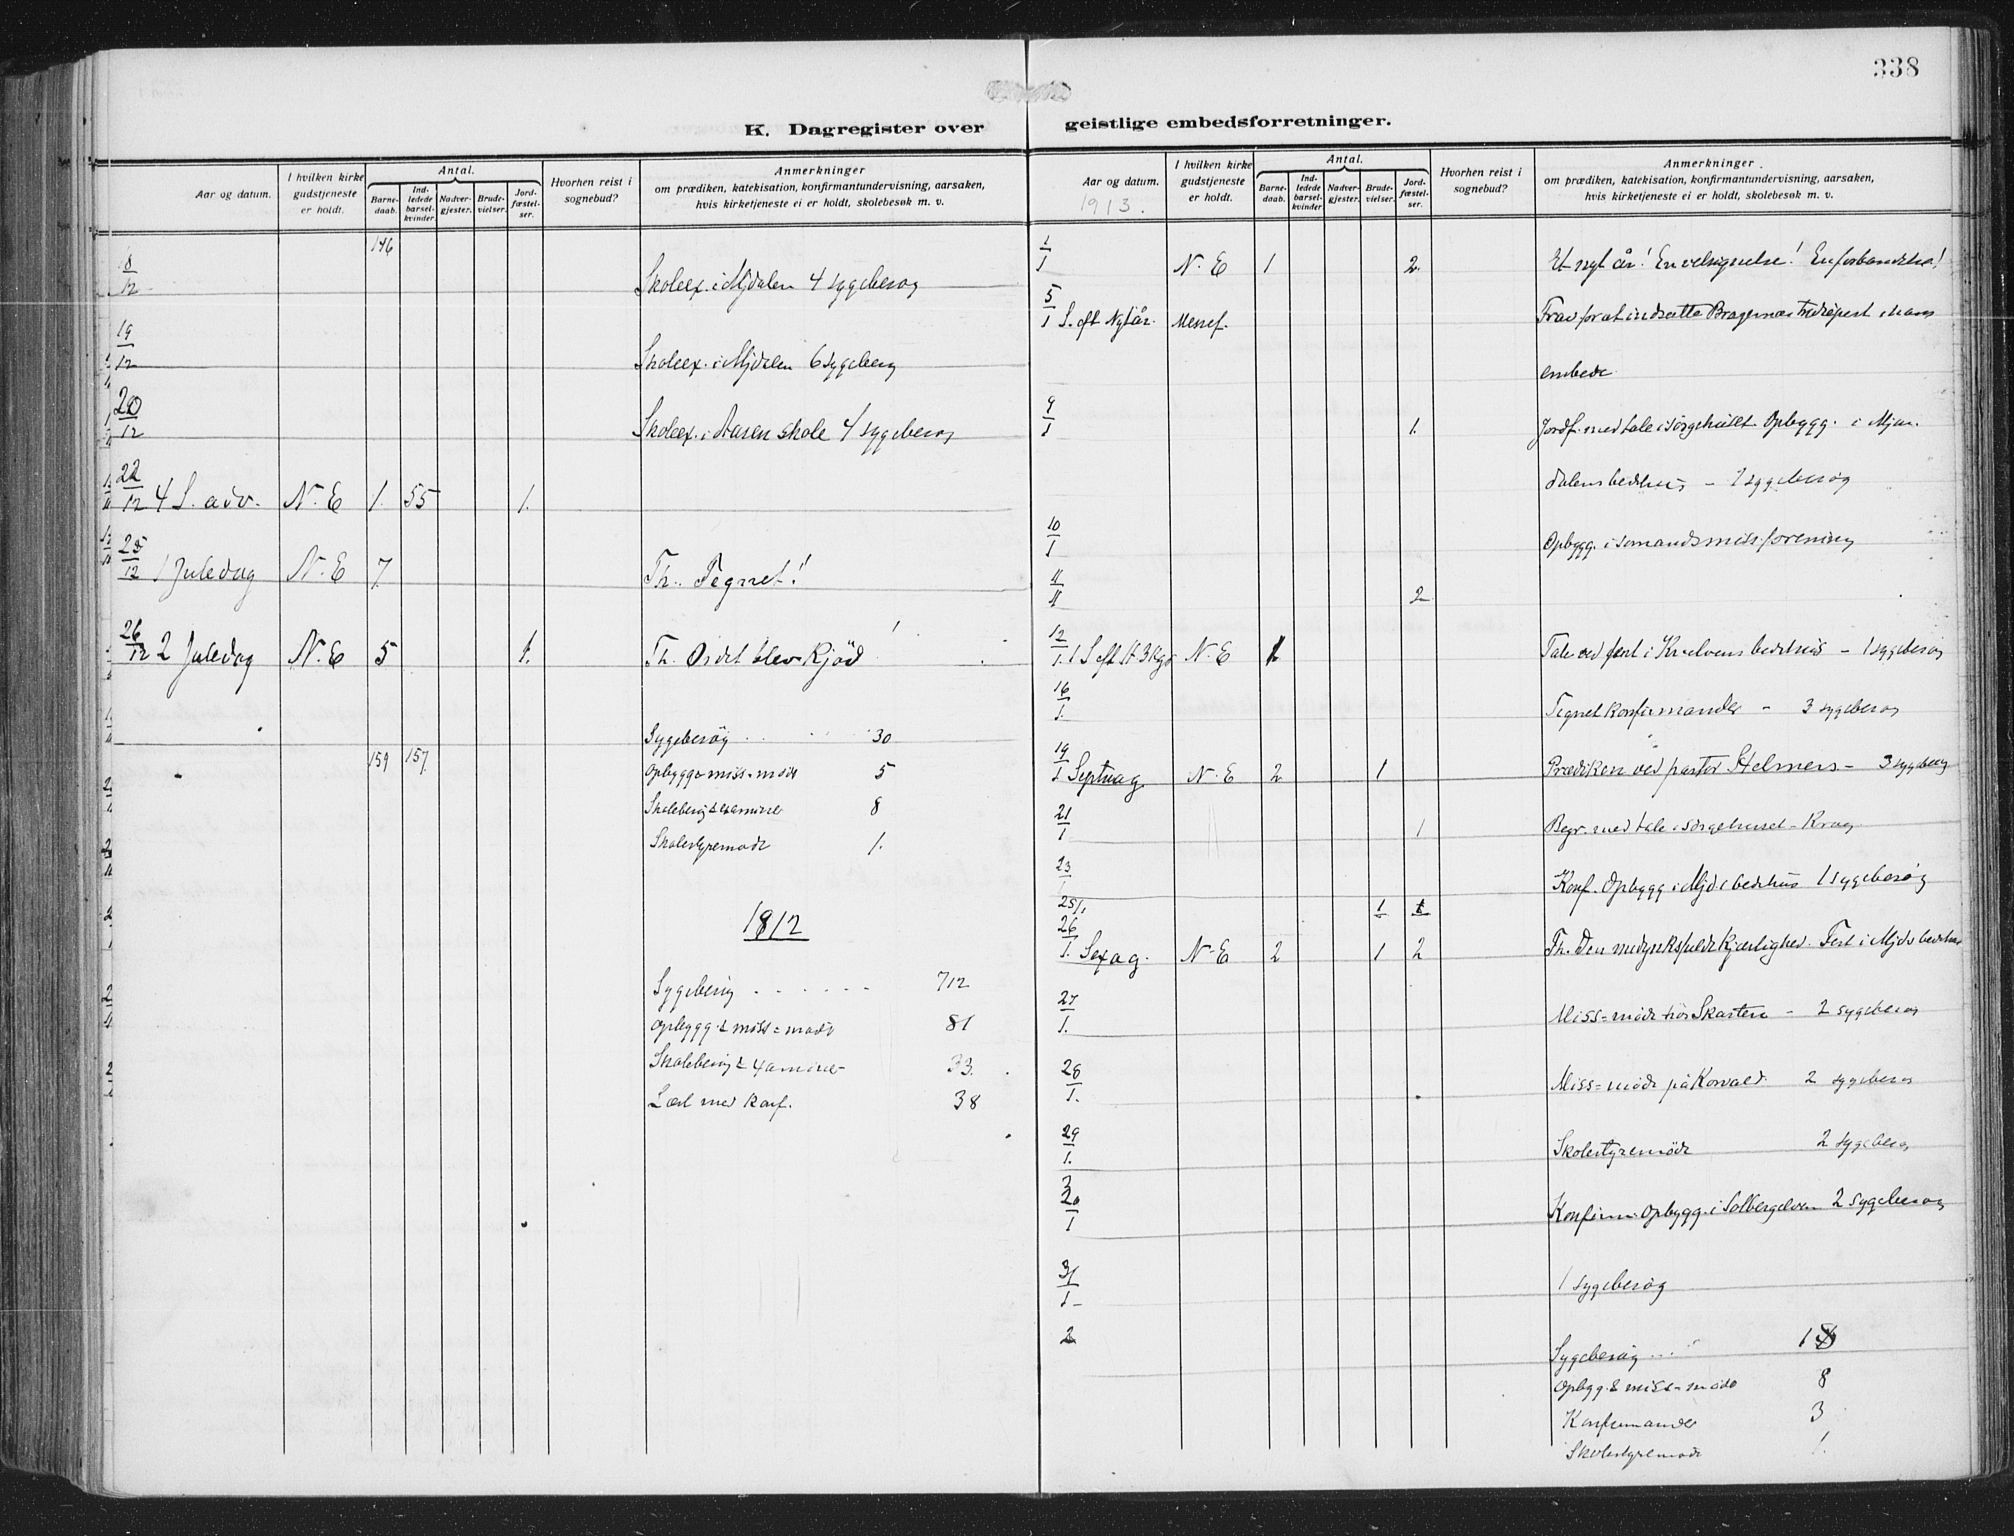 338
K. Dagregister over geistlige embedsforretninger.
Aar og datum.
I hvilken kirke gudstjeneste er holdt.
Antal.
Barne-daab.
Ind-ledede barsel-kvinder
Nadver-gjester.
Brude-vielser.
Jord-fæstel-ser.
Hvorhen reist i sognebud?
Anmerkninger
om prædiken, katekisation, konfirmantundervisning, aarsaken,
hvis kirketjeneste ei er holdt, skolebesøk m. v.
146
18/12 Skoleex. i Mjdalen 4 sygebesøg
19/12 Skoleex. i Mjdalen 6 sygebesøg
20/12 Skoleex. i Aasen skole 4 sygebesøg
22/12 4 S. adv. N. E 1. 55 1.
25/12 1 Juledag N. E 7. Th. Tegnet!
26/12 2 Juledag N. E 5 1. Th. Ordet blev kjød!
159 157
Sygebesøg 30
Opbygg & miss = møde 5
Skolebesøg & examiner 8
Skolestyremøde 1.
1912
Sygebesøg 712
Opbygg. & miss = møde 81
Skolebesøg & examiner 33.
Læst med konf. 38
Aar og datum.
1913.
I hvilken kirke gudstjeneste er holdt.
Antal.
Barne-daab.
Ind-ledede barsel-kvinder
Nadver-gjester.
Brude-vielser.
Jord-fæstel-ser.
Hvorhen reist i sognebud?
Anmerkninger
om prædiken, katekisation, konfirmantundervisning, aarsaken,
hvis kirketjeneste ei er holdt, skolebesøk m. v.
1/1 N. E 1 2. Et nyt år! En velsignelse! En forbandelse!
5/1 S. eft Nytår. Messef. Frav. for at indsætte Bragernæs
embede
9/1 1. Jordf. med tale i sørgehuset. Opbygg. i Mjøn-
dalens bedehus – 1 sygebesøg
10/1 Opbygg. i sømandsmissforening
11/1 2
12/1 1 S. eft H 3 Kgr N. E 1 Tale ved fest i Krelvens bedehus – 1 sygebesøg
16/1. Tegnet konfirmander – 3 sygebesøg
19/1 Septuag N. E 2 1 Prædiken ved pastor Stelmers – 3 sygebesøg
21/1 1 Begr. med tale i sørgehuset – Krag
23 Konf. Opbygg i Mjds bedehus 1 sygebesøg
25/1 1 1
26/1. Sexag. N. E 2 1 2 Th. Den medynksfulde kjærlighed. Fest i Mjds bedehus
27/1. Miss = møde hos Skasten – 2 sygebesøg
28/1. Miss = møde på Korvald 2 sygebesøg
29/1. Skolestyremøde 2 sygebesøg
30/1 Konfirm. Opbygg. i Solbergelven 2 sygebesøg
31/1 1 sygebesøg
2
Sygebesøg 18
Opbygg. & miss = møde 8
Konfirmander 3
Skolestyremøde 1.